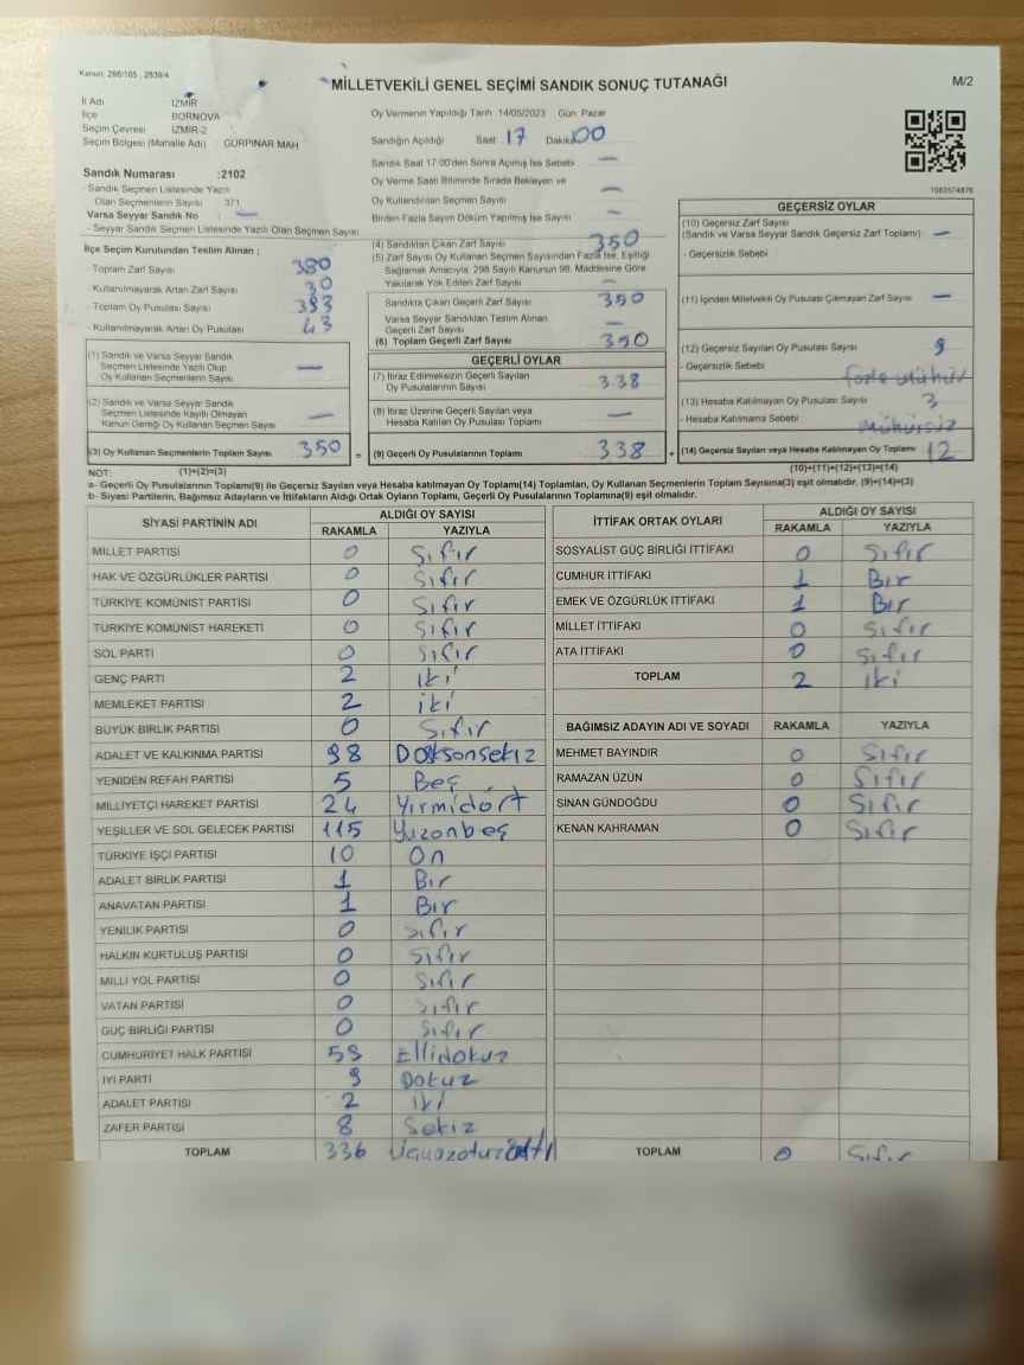 Kanun: 298/105 , 2839/4
MİLLETVEKİLİ GENEL SEÇİMİ SANDIK SONUÇ TUTANAĞI
M/2
İl Adı İZMİR
İlçe BORNOVA
Seçim Çevresi İZMİR-2
Seçim Bölgesi (Mahalle Adı) GÜRPINAR MAH
Sandık Numarası :2102
- Sandık Seçmen Listesinde Yazılı
Olan Seçmenlerin Sayısı 371
Varsa Seyyar Sandık No : —
- Seyyar Sandık Seçmen Listesinde Yazılı Olan Seçmen Sayısı
İlçe Seçim Kurulundan Teslim Alınan ;
- Toplam Zarf Sayısı 380
- Kullanılmayarak Artan Zarf Sayısı 30
- Toplam Oy Pusulası Sayısı 393
- Kullanılmayarak Artan Oy Pusulası 43
(1) Sandık ve Varsa Seyyar Sandık
Seçmen Listesinde Yazılı Olup
Oy Kullanan Seçmenlerin Sayısı —
(2) Sandık ve Varsa Seyyar Sandık
Seçmen Listesinde Kayıtlı Olmayan
Kanun Gereği Oy Kullanan Seçmen Sayısı —
(3) Oy Kullanan Seçmenlerin Toplam Sayısı 350 =
Oy Vermenin Yapıldığı Tarih 14/05/2023 Gün: Pazar
Sandığın Açıldığı Saat 17 Dakika 00
Sandık Saat 17:00'den Sonra Açılmış İse Sebebi —
Oy Verme Saati Bitiminde Sırada Bekleyen ve
Oy Kullandırılan Seçmen Sayısı —
Birden Fazla Sayım Döküm Yapılmış İse Sayısı —
(4) Sandıktan Çıkan Zarf Sayısı 350
(5) Zarf Sayısı Oy Kullanan Seçmen Sayısından Fazla İse, Eşitliği
Sağlamak Amacıyla, 298 Sayılı Kanunun 98. Maddesine Göre
Yakılarak Yok Edilen Zarf Sayısı —
Sandıkta Çıkan Geçerli Zarf Sayısı 350
Varsa Seyyar Sandıktan Teslim Alınan
Geçerli Zarf Sayısı —
(6) Toplam Geçerli Zarf Sayısı 350
GEÇERLİ OYLAR
(7) İtiraz Edilmeksizin Geçerli Sayılan
Oy Pusulalarının Sayısı 338
(8) İtiraz Üzerine Geçerli Sayılan veya
Hesaba Katılan Oy Pusulası Toplamı —
(9) Geçerli Oy Pusulalarının Toplamı 338 +
1083574876
GEÇERSİZ OYLAR
(10) Geçersiz Zarf Sayısı
(Sandık ve Varsa Seyyar Sandık Geçersiz Zarf Toplamı) —
- Geçersizlik Sebebi
(11) İçinden Milletvekili Oy Pusulası Çıkmayan Zarf Sayısı —
(12) Geçersiz Sayılan Oy Pusulası Sayısı 9
- Geçersizlik Sebebi fazla mühür
(13) Hesaba Katılmayan Oy Pusulası Sayısı 3
- Hesaba Katılmama Sebebi Mühürsüz
(14) Geçersiz Sayılan veya Hesaba Katılmayan Oy Toplamı 12
NOT: (1)+(2)=(3) (10)+(11)+(12)+(13)=(14)
a- Geçerli Oy Pusulalarının Toplamı(9) ile Geçersiz Sayılan veya Hesaba katılmayan Oy Toplamı(14) Toplamları, Oy Kullanan Seçmenlerin Toplam Sayısına(3) eşit olmalıdır. (9)+(14)=(3)
b- Siyasi Partilerin, Bağımsız Adayların ve İttifakların Aldığı Ortak Oyların Toplamı, Geçerli Oy Pusulalarının Toplamına(9) eşit olmalıdır.
SİYASİ PARTİNİN ADI ALDIĞI OY SAYISI
RAKAMLA YAZIYLA
MİLLET PARTİSİ 0 Sıfır
HAK VE ÖZGÜRLÜKLER PARTİSİ 0 Sıfır
TÜRKİYE KOMÜNİST PARTİSİ 0 Sıfır
TÜRKİYE KOMÜNİST HAREKETİ 0 Sıfır
SOL PARTİ 0 Sıfır
GENÇ PARTİ 2 iki
MEMLEKET PARTİSİ 2 iki
BÜYÜK BİRLİK PARTİSİ 0 Sıfır
ADALET VE KALKINMA PARTİSİ 98 Doksonsekiz
YENİDEN REFAH PARTİSİ 5 Beş
MİLLİYETÇİ HAREKET PARTİSİ 24 Yirmidört
YEŞİLLER VE SOL GELECEK PARTİSİ 115 Yüzonbeş
TÜRKİYE İŞÇİ PARTİSİ 10 On
ADALET BİRLİK PARTİSİ 1 Bir
ANAVATAN PARTİSİ 1 Bir
YENİLİK PARTİSİ 0 sıfır
HALKIN KURTULUŞ PARTİSİ 0 Sıfır
MİLLİ YOL PARTİSİ 0 Sıfır
VATAN PARTİSİ 0 Sıfır
GÜÇ BİRLİĞİ PARTİSİ 0 Sıfır
CUMHURİYET HALK PARTİSİ 59 Ellidokuz
İYİ PARTİ 9 Dokuz
ADALET PARTİSİ 2 iki
ZAFER PARTİSİ 8 Sekiz
TOPLAM 336
İTTİFAK ORTAK OYLARI ALDIĞI OY SAYISI
RAKAMLA YAZIYLA
SOSYALİST GÜÇ BİRLİĞİ İTTİFAKI 0 Sıfır
CUMHUR İTTİFAKI 1 Bir
EMEK VE ÖZGÜRLÜK İTTİFAKI 1 Bir
MİLLET İTTİFAKI 0 Sıfır
ATA İTTİFAKI 0 Sıfır
TOPLAM 2 iki
BAĞIMSIZ ADAYIN ADI VE SOYADI RAKAMLA YAZIYLA
MEHMET BAYINDIR 0 Sıfır
RAMAZAN ÜZÜN 0 Sıfır
SİNAN GÜNDOĞDU 0 Sıfır
KENAN KAHRAMAN 0 Sıfır
TOPLAM 0 Sıfır